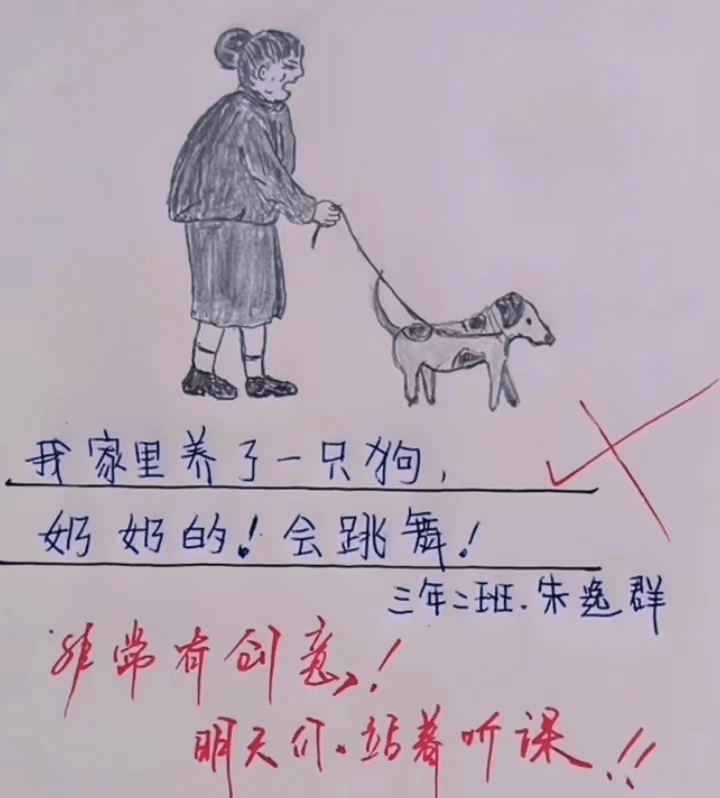 我家里养了一只狗，
奶奶的！会跳舞！
三年二班.朱逸群
非常有创意！
明天你.站着听课！！